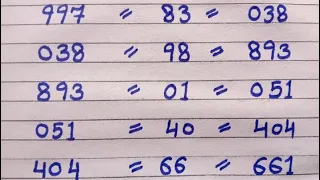 997 = 83 = 038
038 = 98 = 893
893 = 01 = 051
051 = 40 = 404
404 = 66 = 661